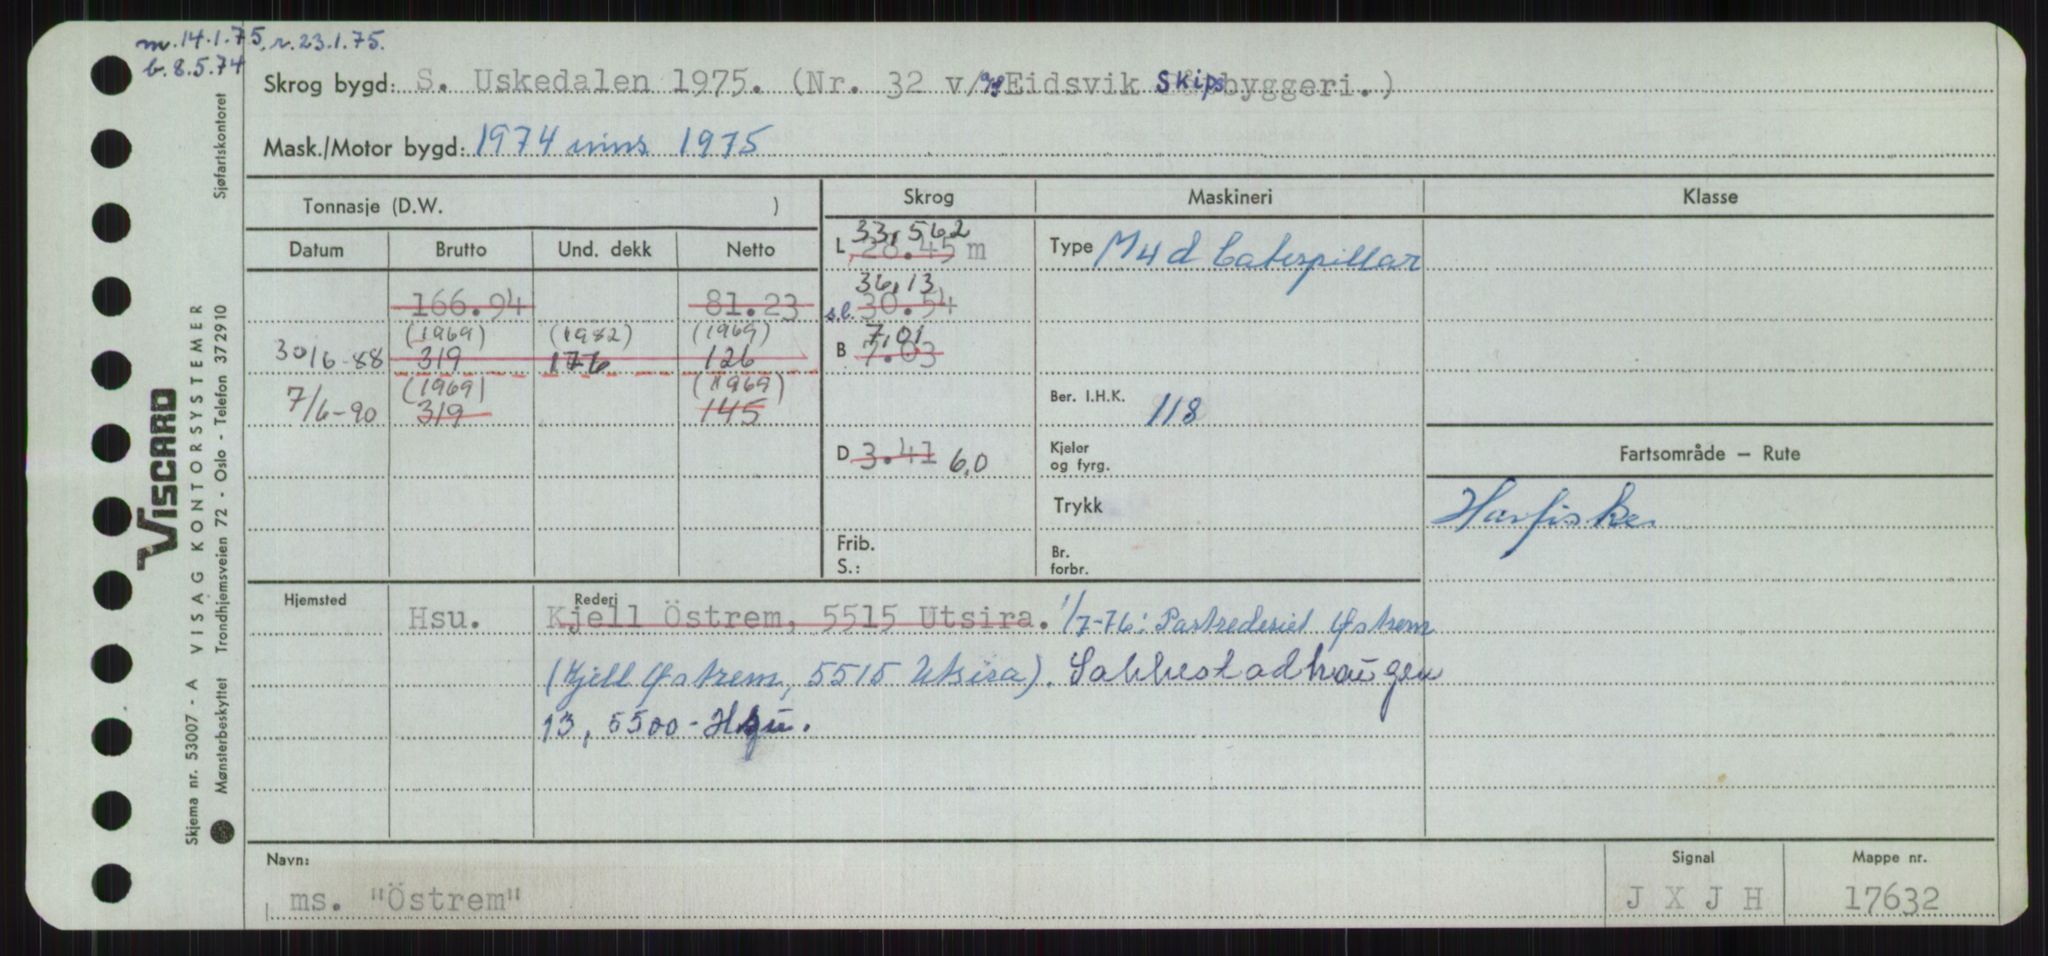 m.14.1.75. r.23.1.75.
b.8.5.74
Skrog bygd: S. Uskedalen 1975. (Nr. 32 v/ Eidsvik Skipsbyggeri.)
Mask./Motor bygd: 1974 inns 1975
Tonnasje (D.W. )
Skrog
Maskineri
Klasse
Datum
Brutto
Und. dekk
Netto
L 33,562
28.45 m
Type M4d Caterpillar
166.94
81.23
36,13
s.b. 30.54
(1969) (1982) (1969)
30/6-88 319 176 126
7,01
B 7.03
(1969) (1969)
7/6-90 319 145
Ber. I.H.K. 118
D 3.41 6,0
Kjeler
og fyrg.
Fartsområde – Rute
Trykk
Havfiske
Frib.
S.:
Br.
forbr.
Hjemsted
Rederi
Hsu. Kjell Östrem, 5515 Utsira. 1/7-76: Partrederiet Østrem
(Kjell Østrem, 5515 Utsira). Salhusstadhaugen
13, 5500 - Hsu.
Navn:
ms. "Östrem"
Signal
J X J H
Mappe nr.
17632
VISCARD
Skjema nr. 53007 - A VISAG KONTORSYSTEMER
Mønsterbeskyttet Trondhjemsveien 72 - Oslo - Telefon 372910
Sjøfartskontoret